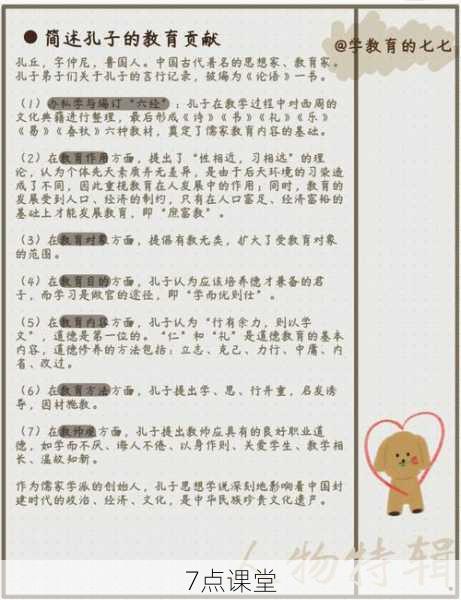 ● 简述孔子的教育贡献
@学教育的七七
孔丘，字仲尼，鲁国人。中国古代著名的思想家、教育家。
孔子弟子们关于孔子的言行记录，被编为《论语》一书。
（1）办私学与编订“六经”：孔子在教学过程中对西周的
文化典籍进行整理，最后形成《诗》《书》《礼》《乐》
《易》《春秋》六种教材，奠定了儒家教育内容的基础。
（2）在教育作用方面，提出了“性相近，习相远”的理
论，认为个体先天素质并无差异，是由于后天环境的习染造
成了不同，因此重视教育在人发展中的作用；同时，教育的
发展受到人口、经济的制约，只有在人口富足、经济富裕的
基础上才能发展教育，即“庶富教”。
（3）在教育对象方面，提倡有教无类，扩大了受教育对象
的范围。
（4）在教育目的方面，孔子认为应该培养德才兼备的君
子，而学习是做官的途径，即“学而优则仕”。
（5）在教育内容方面，孔子认为“行有余力，则以学
文”，道德是第一位的。“仁”和“礼”是道德教育的基本
内容，道德修养的方法包括：立志、克己、力行、中庸、内
省、改过。
（6）在教育方法方面，孔子提出学、思、行并重，启发诱
导，因材施教。
（7）在教师观方面，孔子提出教师应具有的良好职业道
德，如学而不厌、诲人不倦、以身作则、关爱学生、教学相
长、温故知新。
作为儒家学派的创始人，孔子思想学说深刻地影响着中国封
建时代的政治、经济、文化，是中华民族珍贵文化遗产。
人物特辑
7点课堂